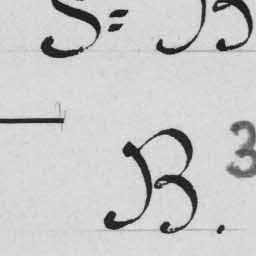 S= B
B. 3